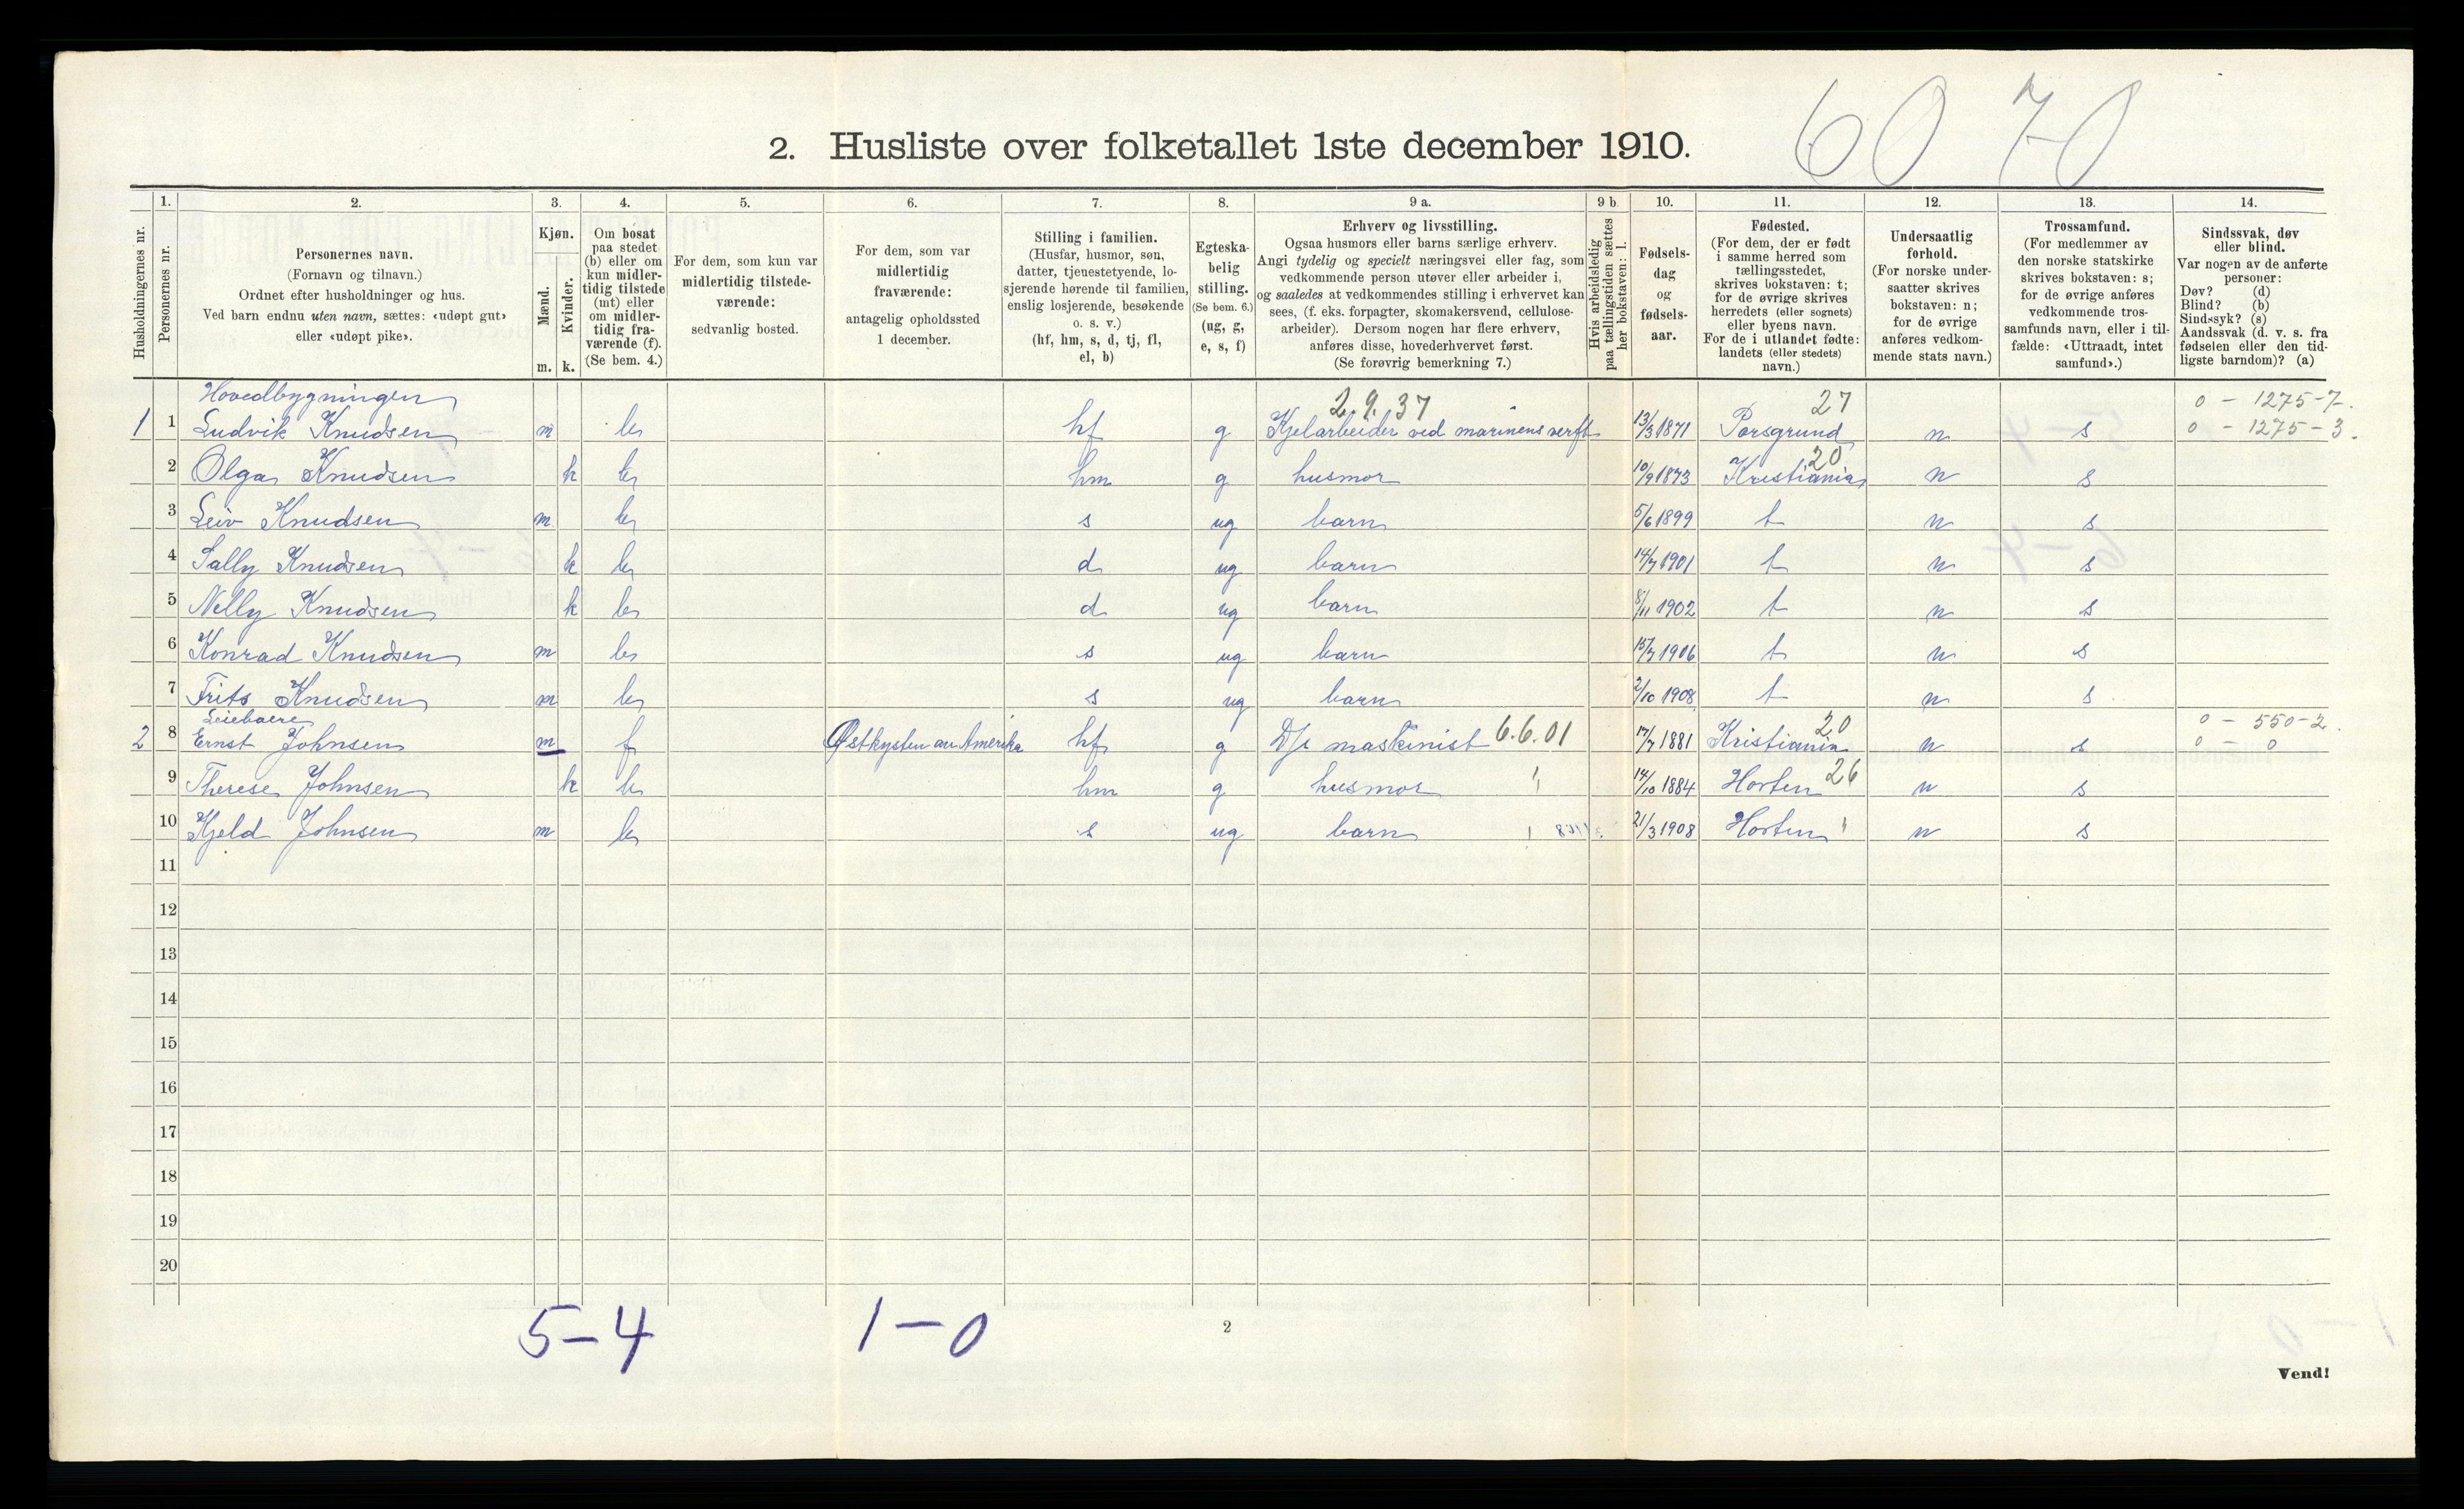 60 70
2. Husliste over folketallet 1ste december 1910.
Husholdningernes nr.
1.
Personernes nr.
2.
Personernes navn.
(Fornavn og tilnavn.)
Ordnet efter husholdninger og hus.
Ved barn endnu uten navn, sættes: «udøpt gut»
eller «udøpt pike».
3.
Kjøn.
Mænd.
Kvinder.
m. k.
4.
Om bosat
paa stedet
(b) eller om
kun midler-
tidig tilstede
(mt) eller
om midler-
tidig fra-
værende (f).
(Se bem. 4.)
5.
For dem, som kun var
midlertidig tilstede-
værende:
sedvanlig bosted.
6.
For dem, som var
midlertidig
fraværende:
antagelig opholdssted
1 december.
7.
Stilling i familien.
(Husfar, husmor, søn,
datter, tjenestetyende, lo-
sjerende hørende til familien,
enslig losjerende, besøkende
o. s. v.)
(hf, hm, s, d, tj, fl,
el, b)
8.
Egteska-
belig
stilling.
(Se bem. 6.)
(ug, g,
e, s, f)
9 a.
Erhverv og livsstilling.
Ogsaa husmors eller barns særlige erhverv.
Angi tydelig og specielt næringsvei eller fag, som
vedkommende person utøver eller arbeider i,
og saaledes at vedkommendes stilling i erhvervet kan
sees, (f. eks. forpagter, skomakersvend, cellulose-
arbeider). Dersom nogen har flere erhverv,
anføres disse, hovederhvervet først.
(Se forøvrig bemerkning 7.)
9 b
Hvis arbeidsledig
paa tællingstiden sættes
her bokstaven: l.
10.
Fødsels-
dag
og
fødsels-
aar.
11.
Fødested.
(For dem, der er født
i samme herred som
tællingsstedet,
skrives bokstaven: t;
for de øvrige skrives
herredets (eller sognets)
eller byens navn.
For de i utlandet fødte:
landets (eller stedets)
navn.)
12.
Undersaatlig
forhold.
(For norske under-
saatter skrives
bokstaven: n;
for de øvrige
anføres vedkom-
mende stats navn.)
13.
Trossamfund.
(For medlemmer av
den norske statskirke
skrives bokstaven: s;
for de øvrige anføres
vedkommende tros-
samfunds navn, eller i til-
fælde: «Uttraadt, intet
samfund».)
14.
Sindssvak, døv
eller blind.
Var nogen av de anførte
personer:
Døv? (d)
Blind? (b)
Sindssyk? (s)
Aandssvak (d. v. s. fra
fødselen eller den tid-
ligste barndom)? (a)
Hovedbygningen 2.9.37 27 0 - 1275-7.
1 1 Ludvik Knudsen m b hf g Kjelarbeider ved marinens verft 13/3 1871 Porsgrund n s 0 - 1275-3.
2 Olga Knudsen k b hm g husmor 10/9 1873 Kristiania 20 n s
3 Leiv Knudsen m b s ug barn 5/6 1899 t n s
4 Sally Knudsen k b d ug barn 14/7 1901 t n s
5 Nelly Knudsen k b d ug barn 8/11 1902 t n s
6 Konrad Knudsen m b s ug barn 15/7 1906 t n s
7 Frits Knudsen m b s ug barn 2/10 1908 t n s
Leieboere 0 - 550-2.
2 8 Ernst Johnsen m f Østkysten av Amerika hf g D/s maskinist 6.6.01 17/7 1881 Kristiania 20 n s 0 - 0
9 Therese Johnsen k b hm g husmor 14/10 1884 Horten 26 n s
10 Kjeld Johnsen m b s ug barn 21/3 1908 Horten n s
11
12
13
14
15
16
17
18
19
20
5-4 1-0
2
Vend!